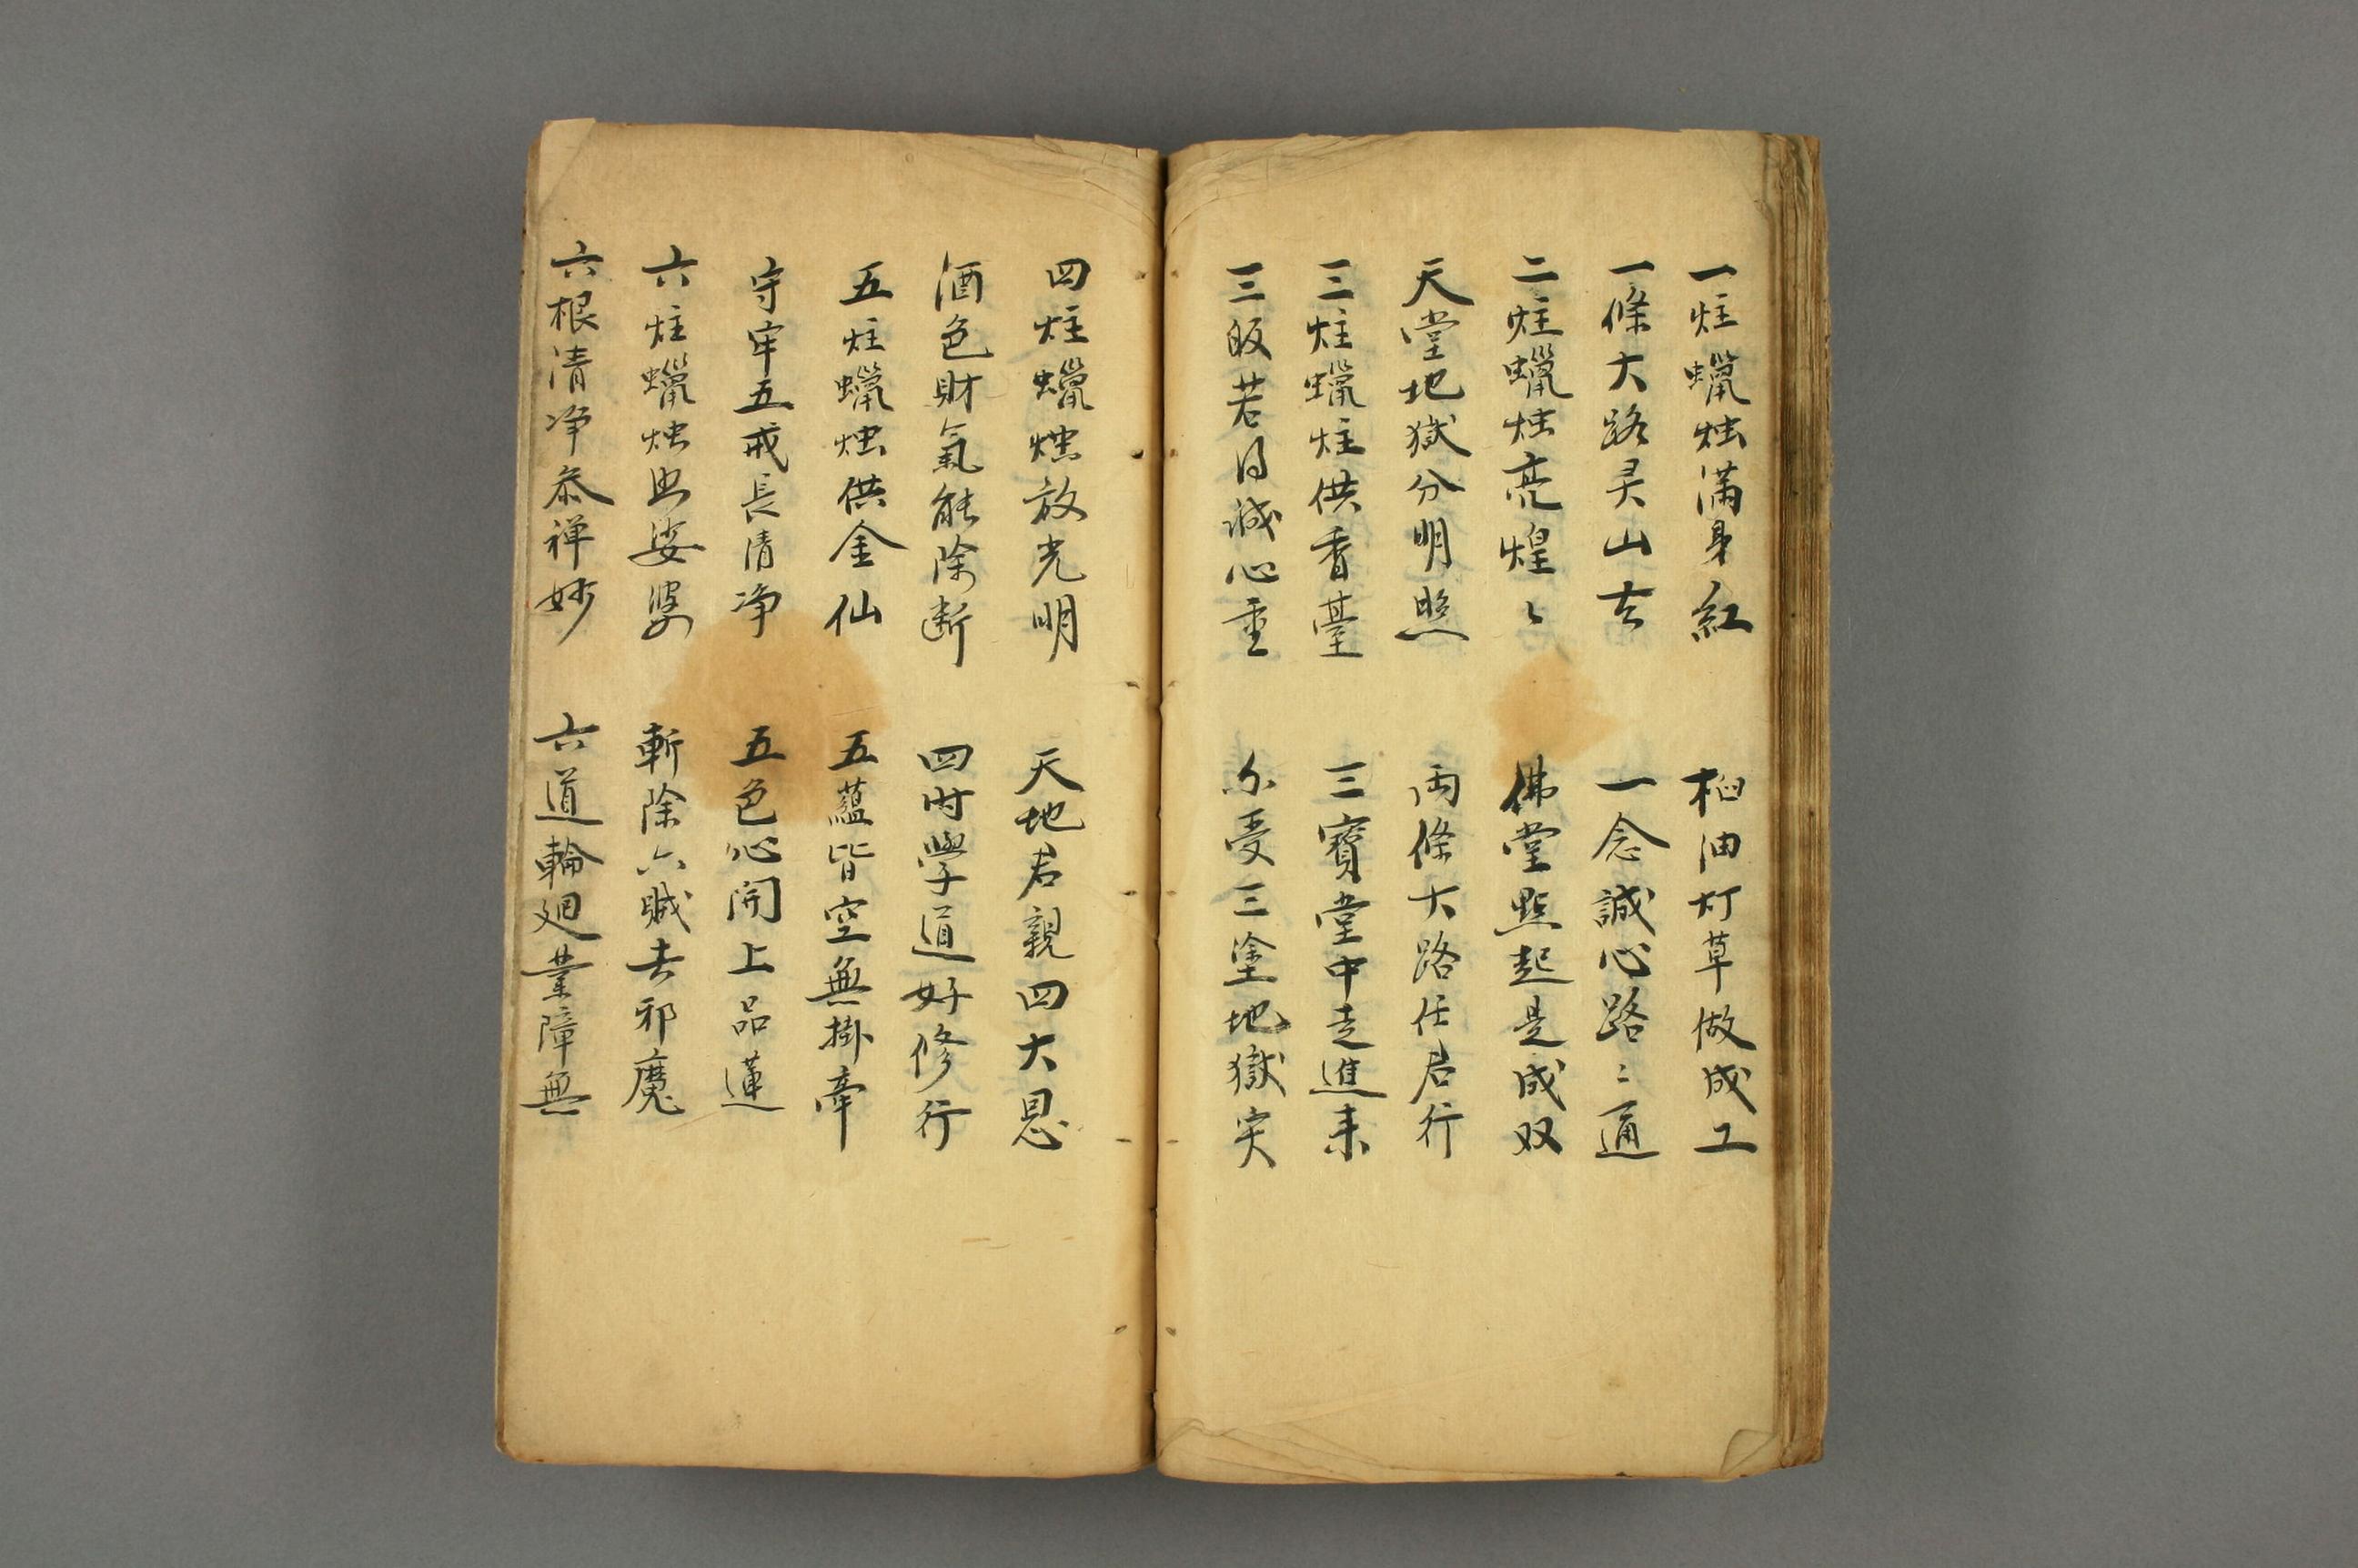 一炷蠟烛滿身紅　桕油灯草做成工
一條大路灵山去　一念誠心路〻通
二炷蠟烛亮煌〻　佛堂點起是成双
天堂地獄分明照　両條大路任君行
三炷蠟炷供香臺　三寶堂中走進来
三皈若得誠心重　尔受三塗地獄灾
四炷蠟烛放光明　天地君親四大恩
酒色財氣能除断　四时學道好修行
五炷蠟烛供金仙　五蘊皆空無掛牽
守牢五戒長清净　五色心開上品蓮
六炷蠟烛照娑婆　斬除六賊去邪魔
六根清净叅禅妙　六道輪廻業障無